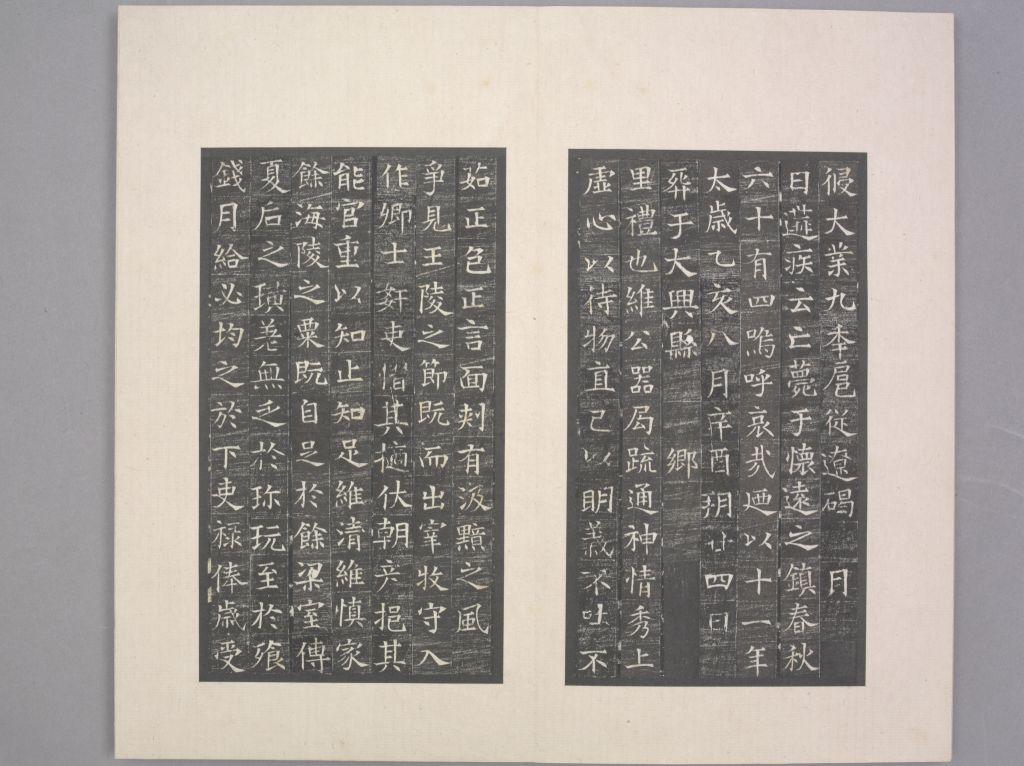 役大業九年扈從遼碣 月
日遘疾云亡薨于懷遠之鎮春秋
六十有四嗚呼哀哉迺以十一年
太歲乙亥八月辛酉朔廿四日
葬于大興縣 鄉
里禮也維公器局疏通神情秀上
虛心以待物直己以明義不吐不
茹正色正言面刾有汲黯之風
爭見王陵之節既而出宰牧守入
作卿士奸吏憯其擿伏朝弁挹其
能官重以知止知足維清維慎家
餘海陵之粟既自足於餘梁室傳
夏后之璜羌無乏於珎玩至於飡
錢月給必均之於下吏祿俸歲受